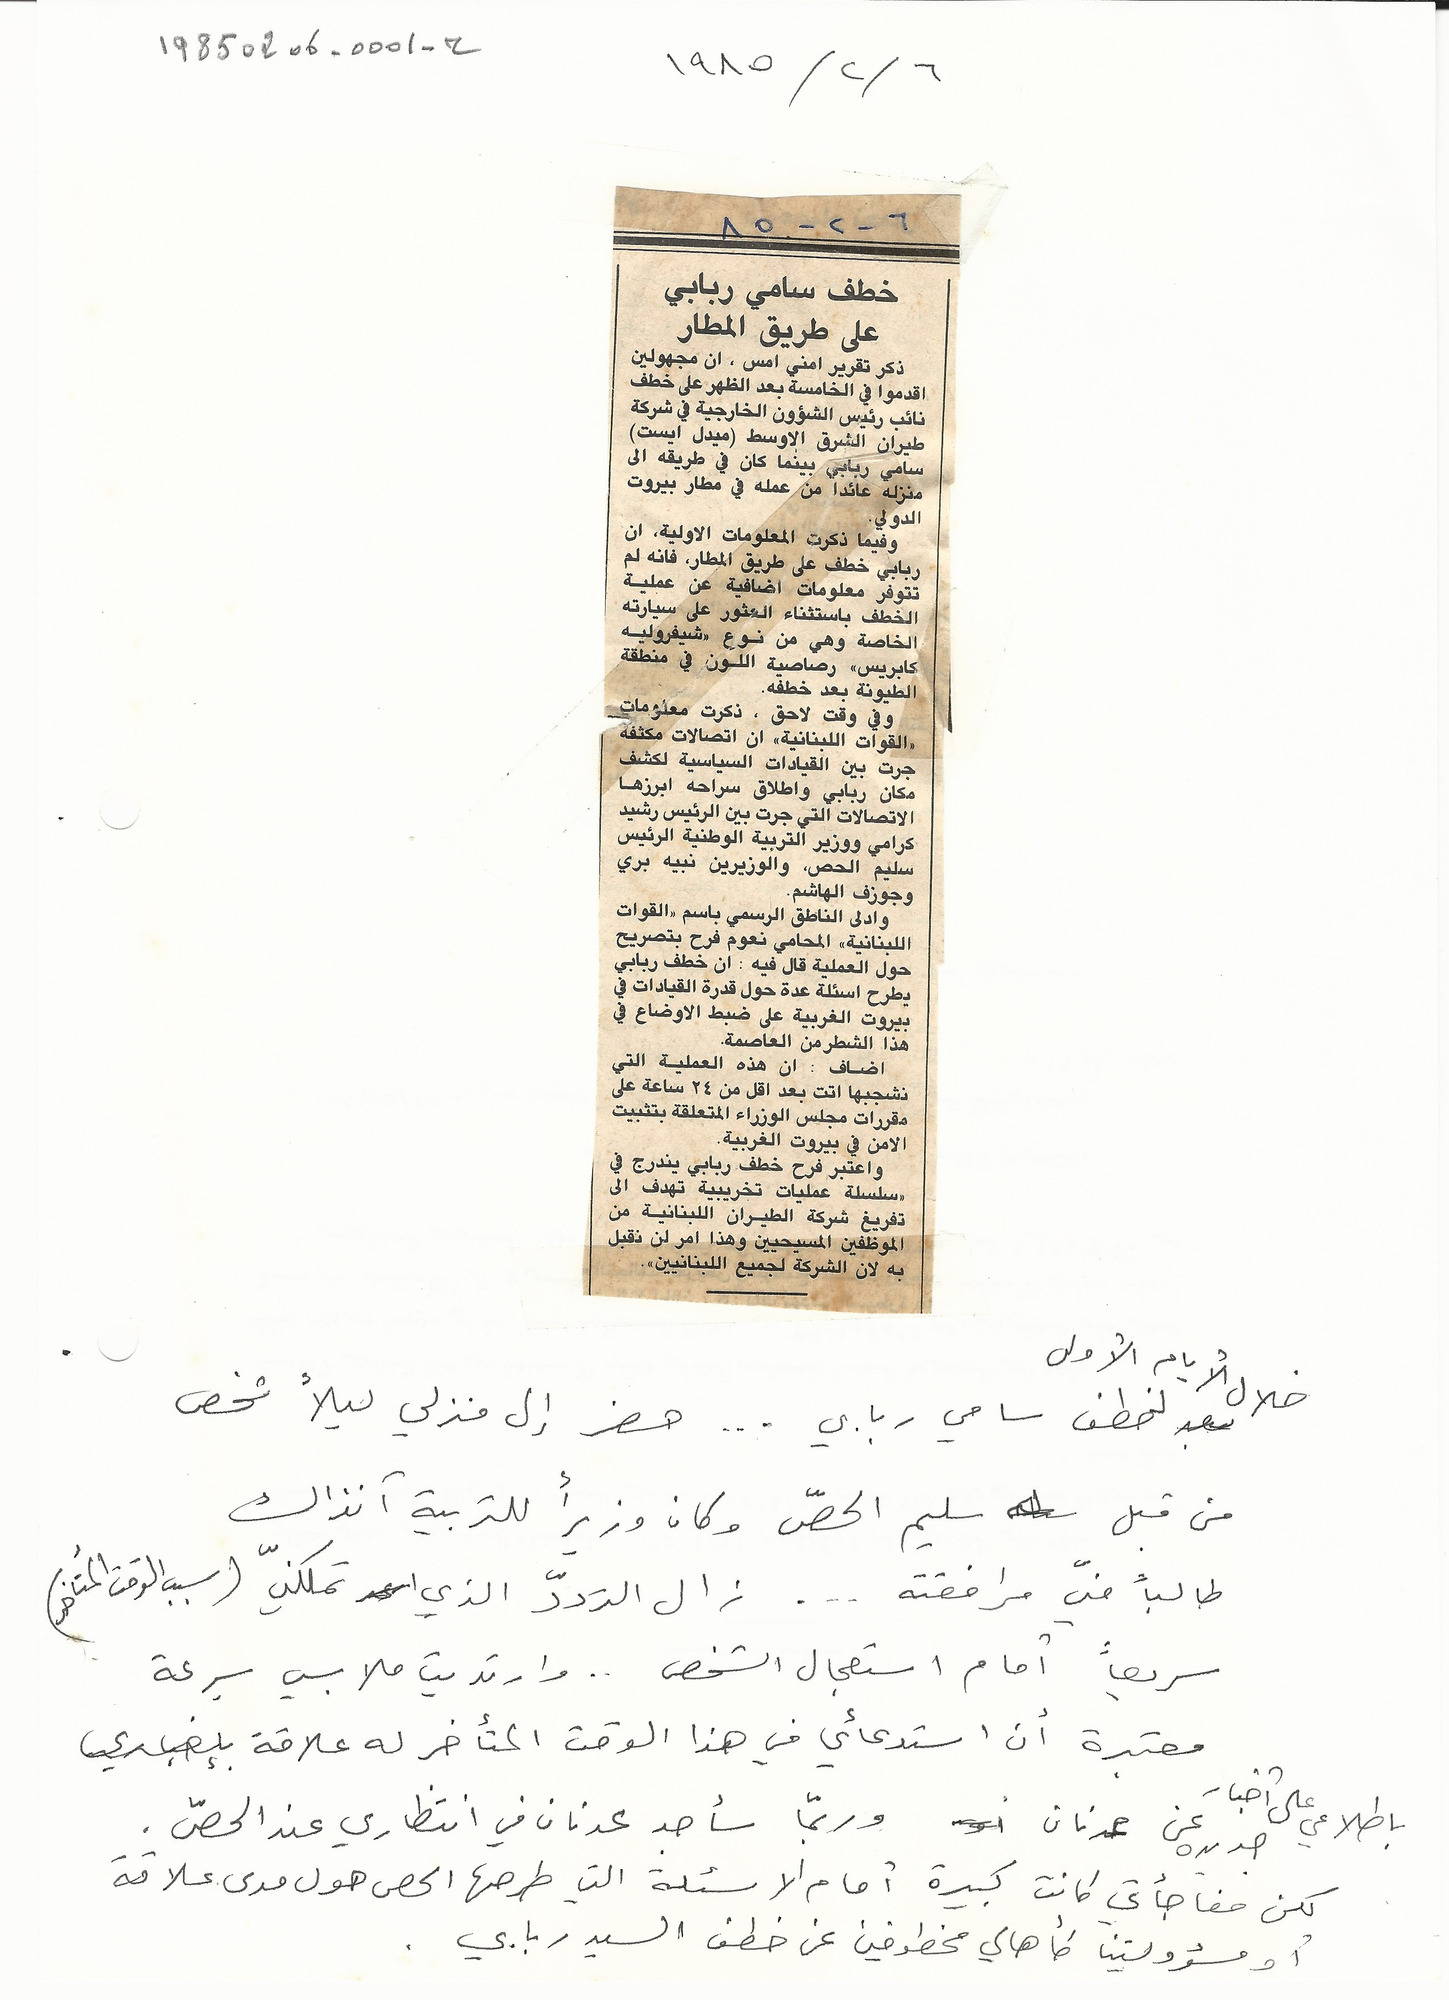 19850206-0001-2
١٩٨٥/٢/٦
٨٥-٢-٦
خطف سامي ربابي
على طريق المطار
ذكر تقرير امني امس ، ان مجهولين
اقدموا في الخامسة بعد الظهر على خطف
نائب رئيس الشؤون الخارجية في شركة
طيران الشرق الاوسط (ميدل ايست)
سامي ربابي بينما كان في طريقه الى
منزله عائدا من عمله في مطار بيروت
الدولي.
وفيما ذكرت المعلومات الاولية، ان
ربابي خطف على طريق المطار، فانه لم
تتوفر معلومات اضافية عن عملية
الخطف باستثناء العثور على سيارته
الخاصة وهي من نوع «شيفروليه
كابريس» رصاصية اللون في منطقة
الطيونة بعد خطفه.
وفي وقت لاحق ، ذكرت معلومات
«القوات اللبنانية» ان اتصالات مكثفة
جرت بين القيادات السياسية لكشف
مكان ربابي واطلاق سراحه ابرزها
الاتصالات التي جرت بين الرئيس رشيد
كرامي ووزير التربية الوطنية الرئيس
سليم الحص، والوزيرين نبيه بري
وجوزف الهاشم.
وادلى الناطق الرسمي باسم «القوات
اللبنانية» المحامي نعوم فرح بتصريح
حول العملية قال فيه : ان خطف ربابي
يطرح اسئلة عدة حول قدرة القيادات في
بيروت الغربية على ضبط الاوضاع في
هذا الشطر من العاصمة.
اضاف : ان هذه العملية التي
نشجبها اتت بعد اقل من ٢٤ ساعة على
مقررات مجلس الوزراء المتعلقة بتثبيت
الامن في بيروت الغربية.
واعتبر فرح خطف ربابي يندرج في
«سلسلة عمليات تخريبية تهدف الى
تفريغ شركة الطيران اللبنانية من
الموظفين المسيحيين وهذا امر لن نقبل
به لان الشركة لجميع اللبنانيين».
الأيام الأولى
خلال لخطف سامي ربابي .... حضر إلى منزلي ليلاً شخص
من قبل سليم الحصّ وكان وزيراً للتربية آنذاك
طالباً منّي مرافقته .... زال التردّد الذي تملكنيّ (بسبب الوقت المتأخر)
سريعاً أمام استعجال الشخص .. وارتديت ملابسي بسرعة
معتبرة أن استدعائي في هذا الوقت المتأخر له علاقة
باطلاعي على أخبار جديدة عن عدنان وربمّا سأجد عدنان في انتظاري عند الحصّ .
لكن مفاجأتي كانت كبيرة أمام الأسئلة التي طرحها الحص حول مدى علاقة
أو مسؤوليتنا كأهالي مخطوفين عن خطف السيد ربابي .